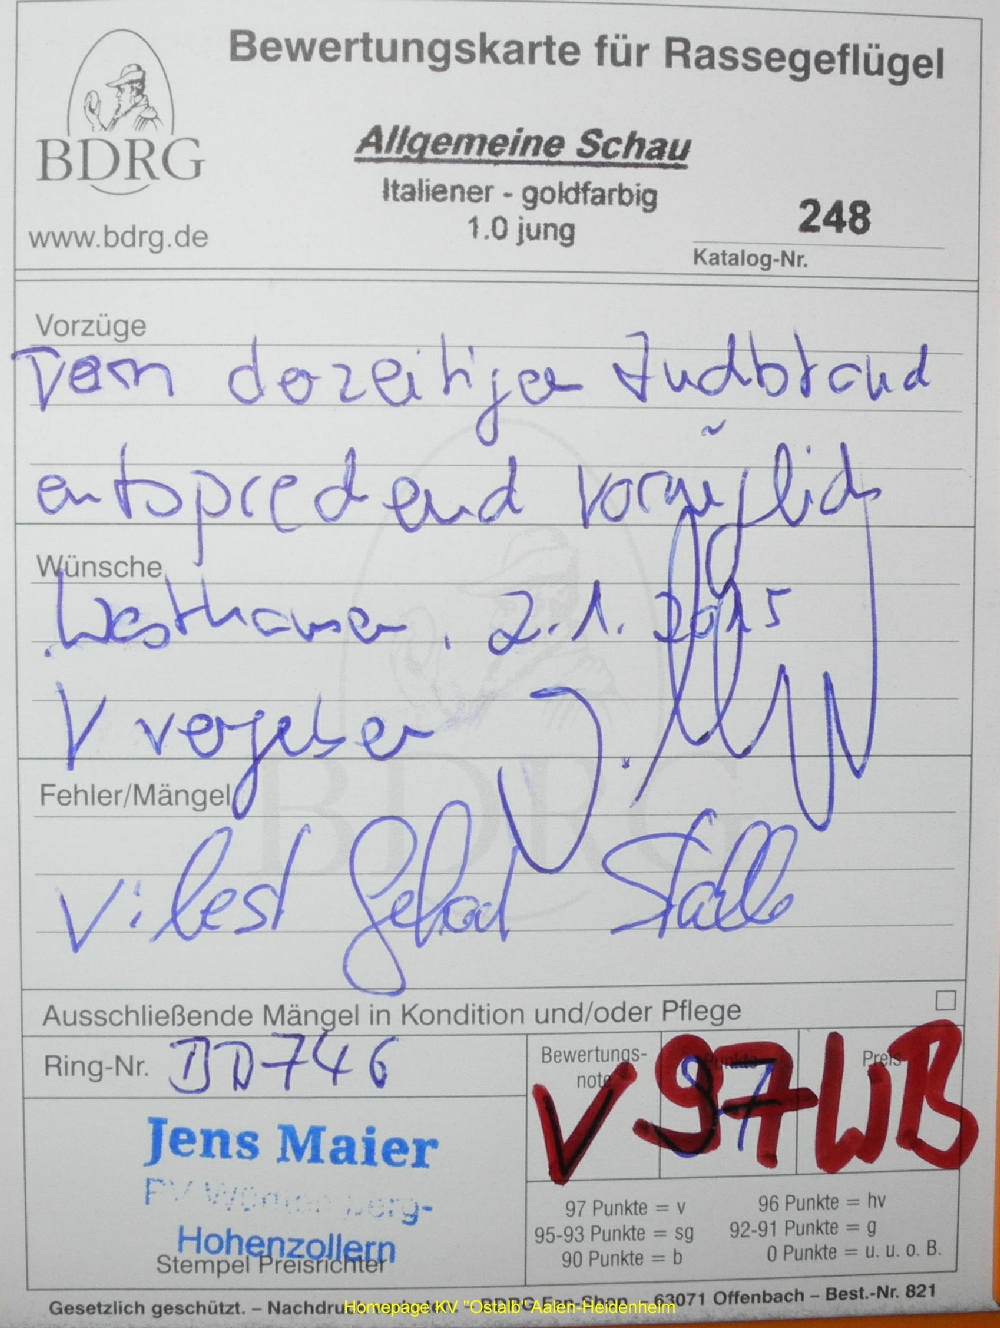 Bewertungskarte für Rassegeflügel
BDRG
www.bdrg.de
Allgemeine Schau
Italiener - goldfarbig
1.0 jung
248
Katalog-Nr.
Vorzüge
Dem derzeitigen Zuchtstand
entsprechend vorzüglich
Wünsche
Westhausen, 2.1.2015
V vergeben J.
Fehler/Mängel
V: best
BDRG
Ausschließende Mängel in Kondition und/oder Pflege
Ring-Nr. BD746
Bewertungs-
note
Punkte
Preis
V 97 WB
Jens Maier
PV Württemberg-
Hohenzollern
Stempel Preisrichter
97 Punkte = v 96 Punkte = hv
95-93 Punkte = sg 92-91 Punkte = g
90 Punkte = b 0 Punkte = u. u. o. B.
Gesetzlich geschützt. – BDRG – 63071 Offenbach – Best.-Nr. 821
Homepage KV "Ostalb" Aalen-Heidenheim